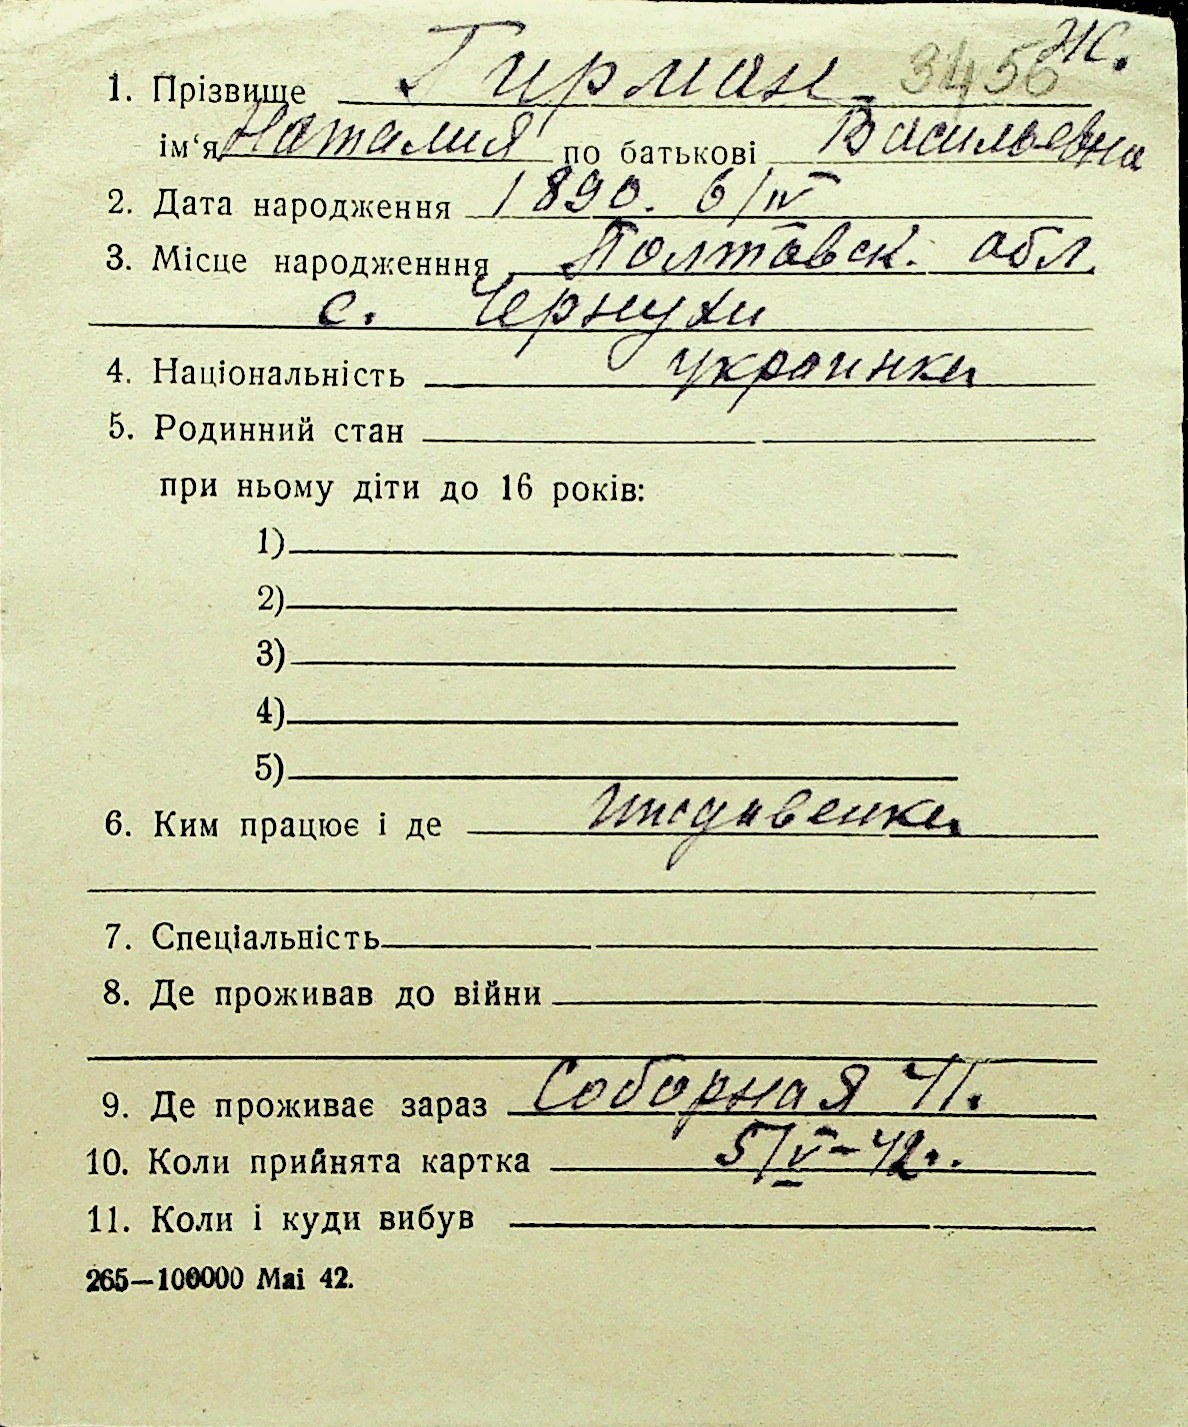 Ж.
3456
1. Прізвище Гирман
ім‘я Наталия по батькові Васильевна
2. Дата народження 1890. 6/IV
3. Місце народженння Полтавск. обл.
с. Чернухи
4. Національність украинка
5. Родинний стан
при ньому діти до 16 років:
1)
2)
3)
4)
5)
6. Ким працює і де иждивенка
7. Спеціальність
8. Де проживав до війни
9. Де проживає зараз Соборная 41.
10. Коли прийнята картка 5/V-42г.
11. Коли і куди вибув
265—100000 Mai 42.